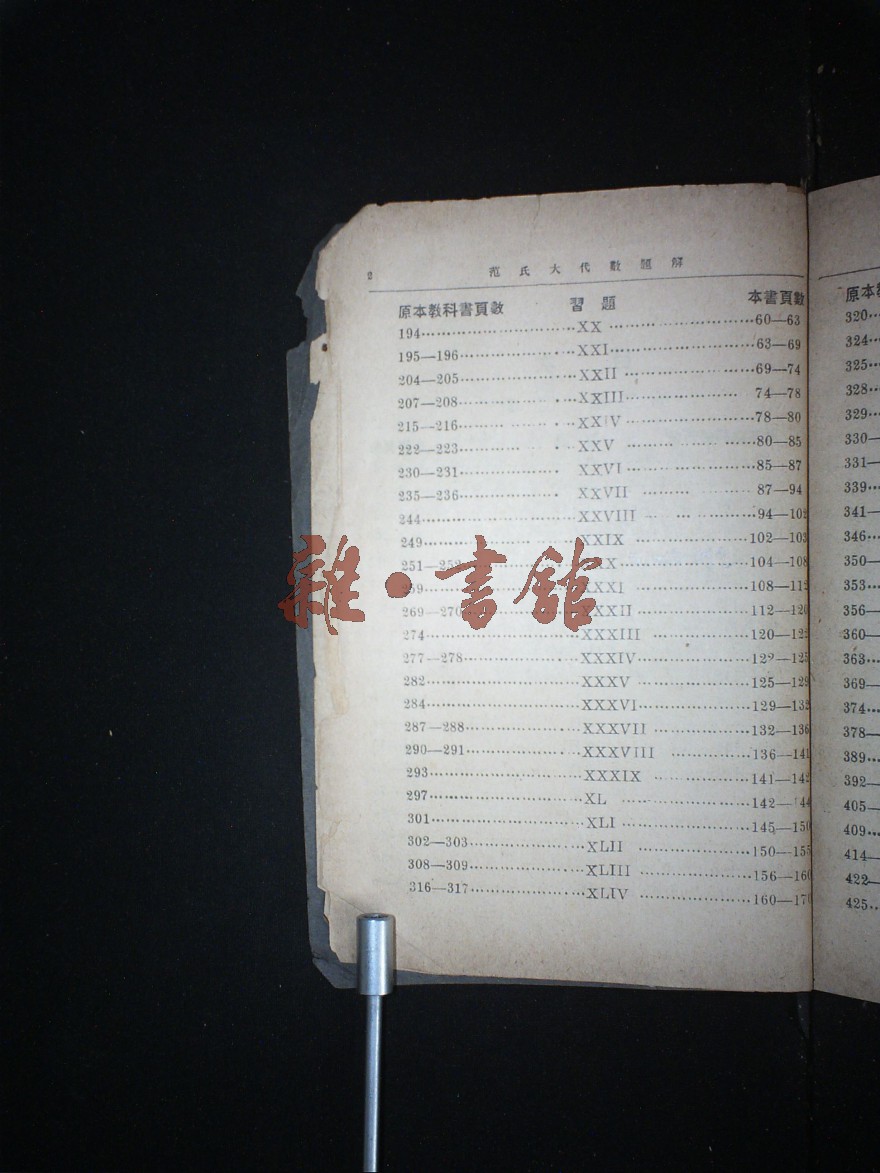 2 范氏大代數題解
原本教科書頁數 習題 本書頁數
194 XX 60—63
195—196 XXI 63—69
204—205 XXII 69—74
207—208 XXIII 74—78
215—216 XXIV 78—80
222—223 XXV 80—85
230—231 XXVI 85—87
235—236 XXVII 87—94
244 XXVIII 94—102
249 XXIX 102—103
251—252 104—108
XXXI 108—112
269—270 XXXII 112—120
274 XXXIII 120—122
277—278 XXXIV 122—125
282 XXXV 125—129
284 XXXVI 129—132
287—288 XXXVII 132—136
290—291 XXXVIII 136—141
293 XXXIX 141—142
297 XL 142—144
301 XLI 145—150
302—303 XLII 150—155
308—309 XLIII 156—160
316—317 XLIV 160—170
原本
320
324
325
328
329
330—
331—
339
341—
346
350—
353
356—
360—
363
369—
374
378—
389
392—
405—
409
414—
422—
425
雜·書館